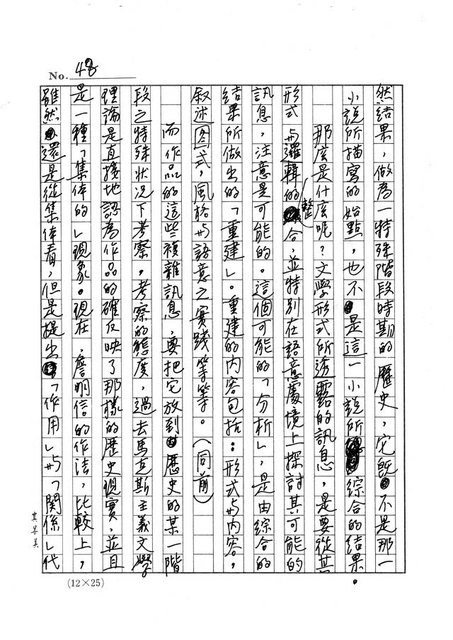 No. 48
然結果,做為一特殊階段時期的歷史,它既不是那一
小說所描寫的始點,也不是這一小說所綜合的結果。
那底是什麼呢?文學形式所透露的訊息,是要從其
形式與邏輯的整合,並特別在語意處境上探討其可能的
訊息,注意是可能的。這個可能的「分析」,是由綜合的
結果所做出的「重建」。重建的內容包括:形式與內容,
敘述图式,風格與語意之實踐等等。(同前)
而作品的這些複雜訊息,要把它放到歷史的某一階
段之特殊狀況下考察,考察的態度,過去馬克斯主義文學
理論是直接地認為作品的確反映了那樣的歷史現實,並且
是一種「集体的」現象。現在,詹明信的作法,比較上,
雖然還是從集体看,但是提出「作用」與「關係」代
(12×25)